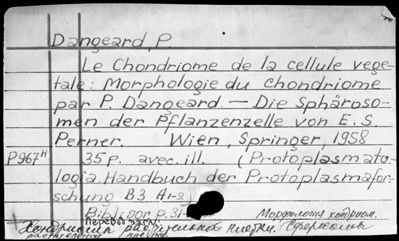 Dangeard, P.
Le Chondriome de la cellule vege-
tale: Morphologie du chondriome
par P. Dangeard — Die Sphäroso-
men der Pflanzenzelle von E. S.
Perner. Wien, Springer, 1958
P967H 35 p. avec. ill. (Protoplasmato-
logia. Handbuch der Protoplasmafor-
schung B3 A1-2)
Bibl: dor p. 31-
Морфология хондриом.
Перевод загл.
Хондриомы растительной клетки. Сферосомы
растительной